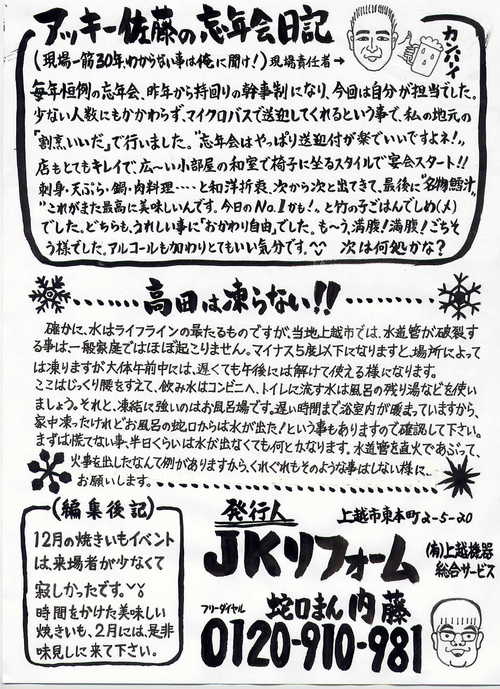 アッキー佐藤の忘年会日記
(現場一筋30年、わからない事は俺に聞け!)現場責任者→
カンパーイ
毎年恒例の忘年会、昨年から持回りの幹事制になり、今回は自分が担当でした。
少ない人数にもかかわらず、マイクロバスで送迎してくれるという事で、私の地元の
「割烹いいだ」で行いました。〝忘年会はやっぱり送迎付が楽でいいですよネ!〟
店もとてもキレイで、広〜い小部屋の和室で椅子に坐るスタイルで宴会スタート!!
刺身・天ぷら・鍋・肉料理‥‥と和洋折衷、次から次と出てきて、最後に〝名物鱈汁
〟これがまた最高に美味しいんです。今日のNo.1かも!。と竹の子ごはんでしめ(〆)
でした。どちらも、うれしい事に「おかわり自由」でした。も〜う、満腹!満腹!ごちそ
う様でした。アルコールも加わりとてもいい気分です。 次は何処かな?
高田は凍らない!!
確かに、水はライフラインの最たるものですが、当地上越市では、水道管が破裂す
る事は、一般家庭ではほぼ起こりません。マイナス5度以下になりますと、場所によって
は凍りますが大体午前中には、遅くても午後には解けて使える様になります。
ここはじっくり腰をすえて、飲み水はコンビニへ、トイレに流す水は風呂の残り湯などを使い
ましょう。それと、凍結に強いのはお風呂場です。遅い時間まで浴室内が暖まっていますから、
家中凍ったけれどお風呂の蛇口からは水が出た!という事もありますので確認して下さい。
まずは慌てない事、半日くらいは水が出なくても何とかなります。水道管を直火であぶって、
火事を出したなんて例がありますから、くれぐれもそのような事はしない様に‥
お願いします。
(編集後記)
12月の焼きいもイベント
は、来場者が少なくて
寂しかったです。
時間をかけた美味しい
焼きいも、2月には、是非
味見しに来て下さい。
発行人
上越市東本町2-5-20
JKリフォーム
(有)上越機器
総合サービス
蛇口まん 内藤
フリーダイヤル
0120-910-981